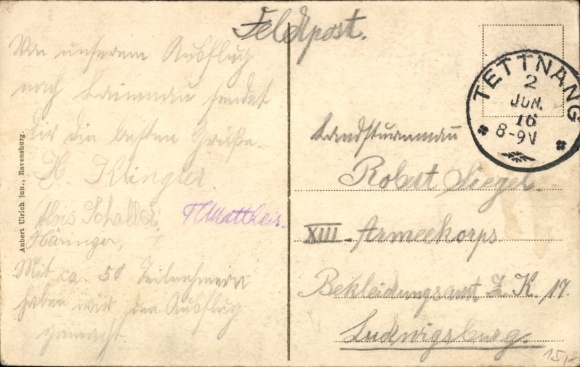 Feldpost.
Von unserem Ausflug
nach Laimnau sendet
dir die besten Grüße.
H. Klingler
Schaller
T. Mattheis.
Mit ca. 50 Teilnehmern
haben wir den Ausflug
gemacht.
Landsturmmann
Robert Siegel
XIII. Armeekorps
Bekleidungsamt Z. K. 17.
Ludwigsburg.
TETTNANG
2
JUN.
16
8-9V
Aubert Ulrich jun., Ravensburg.